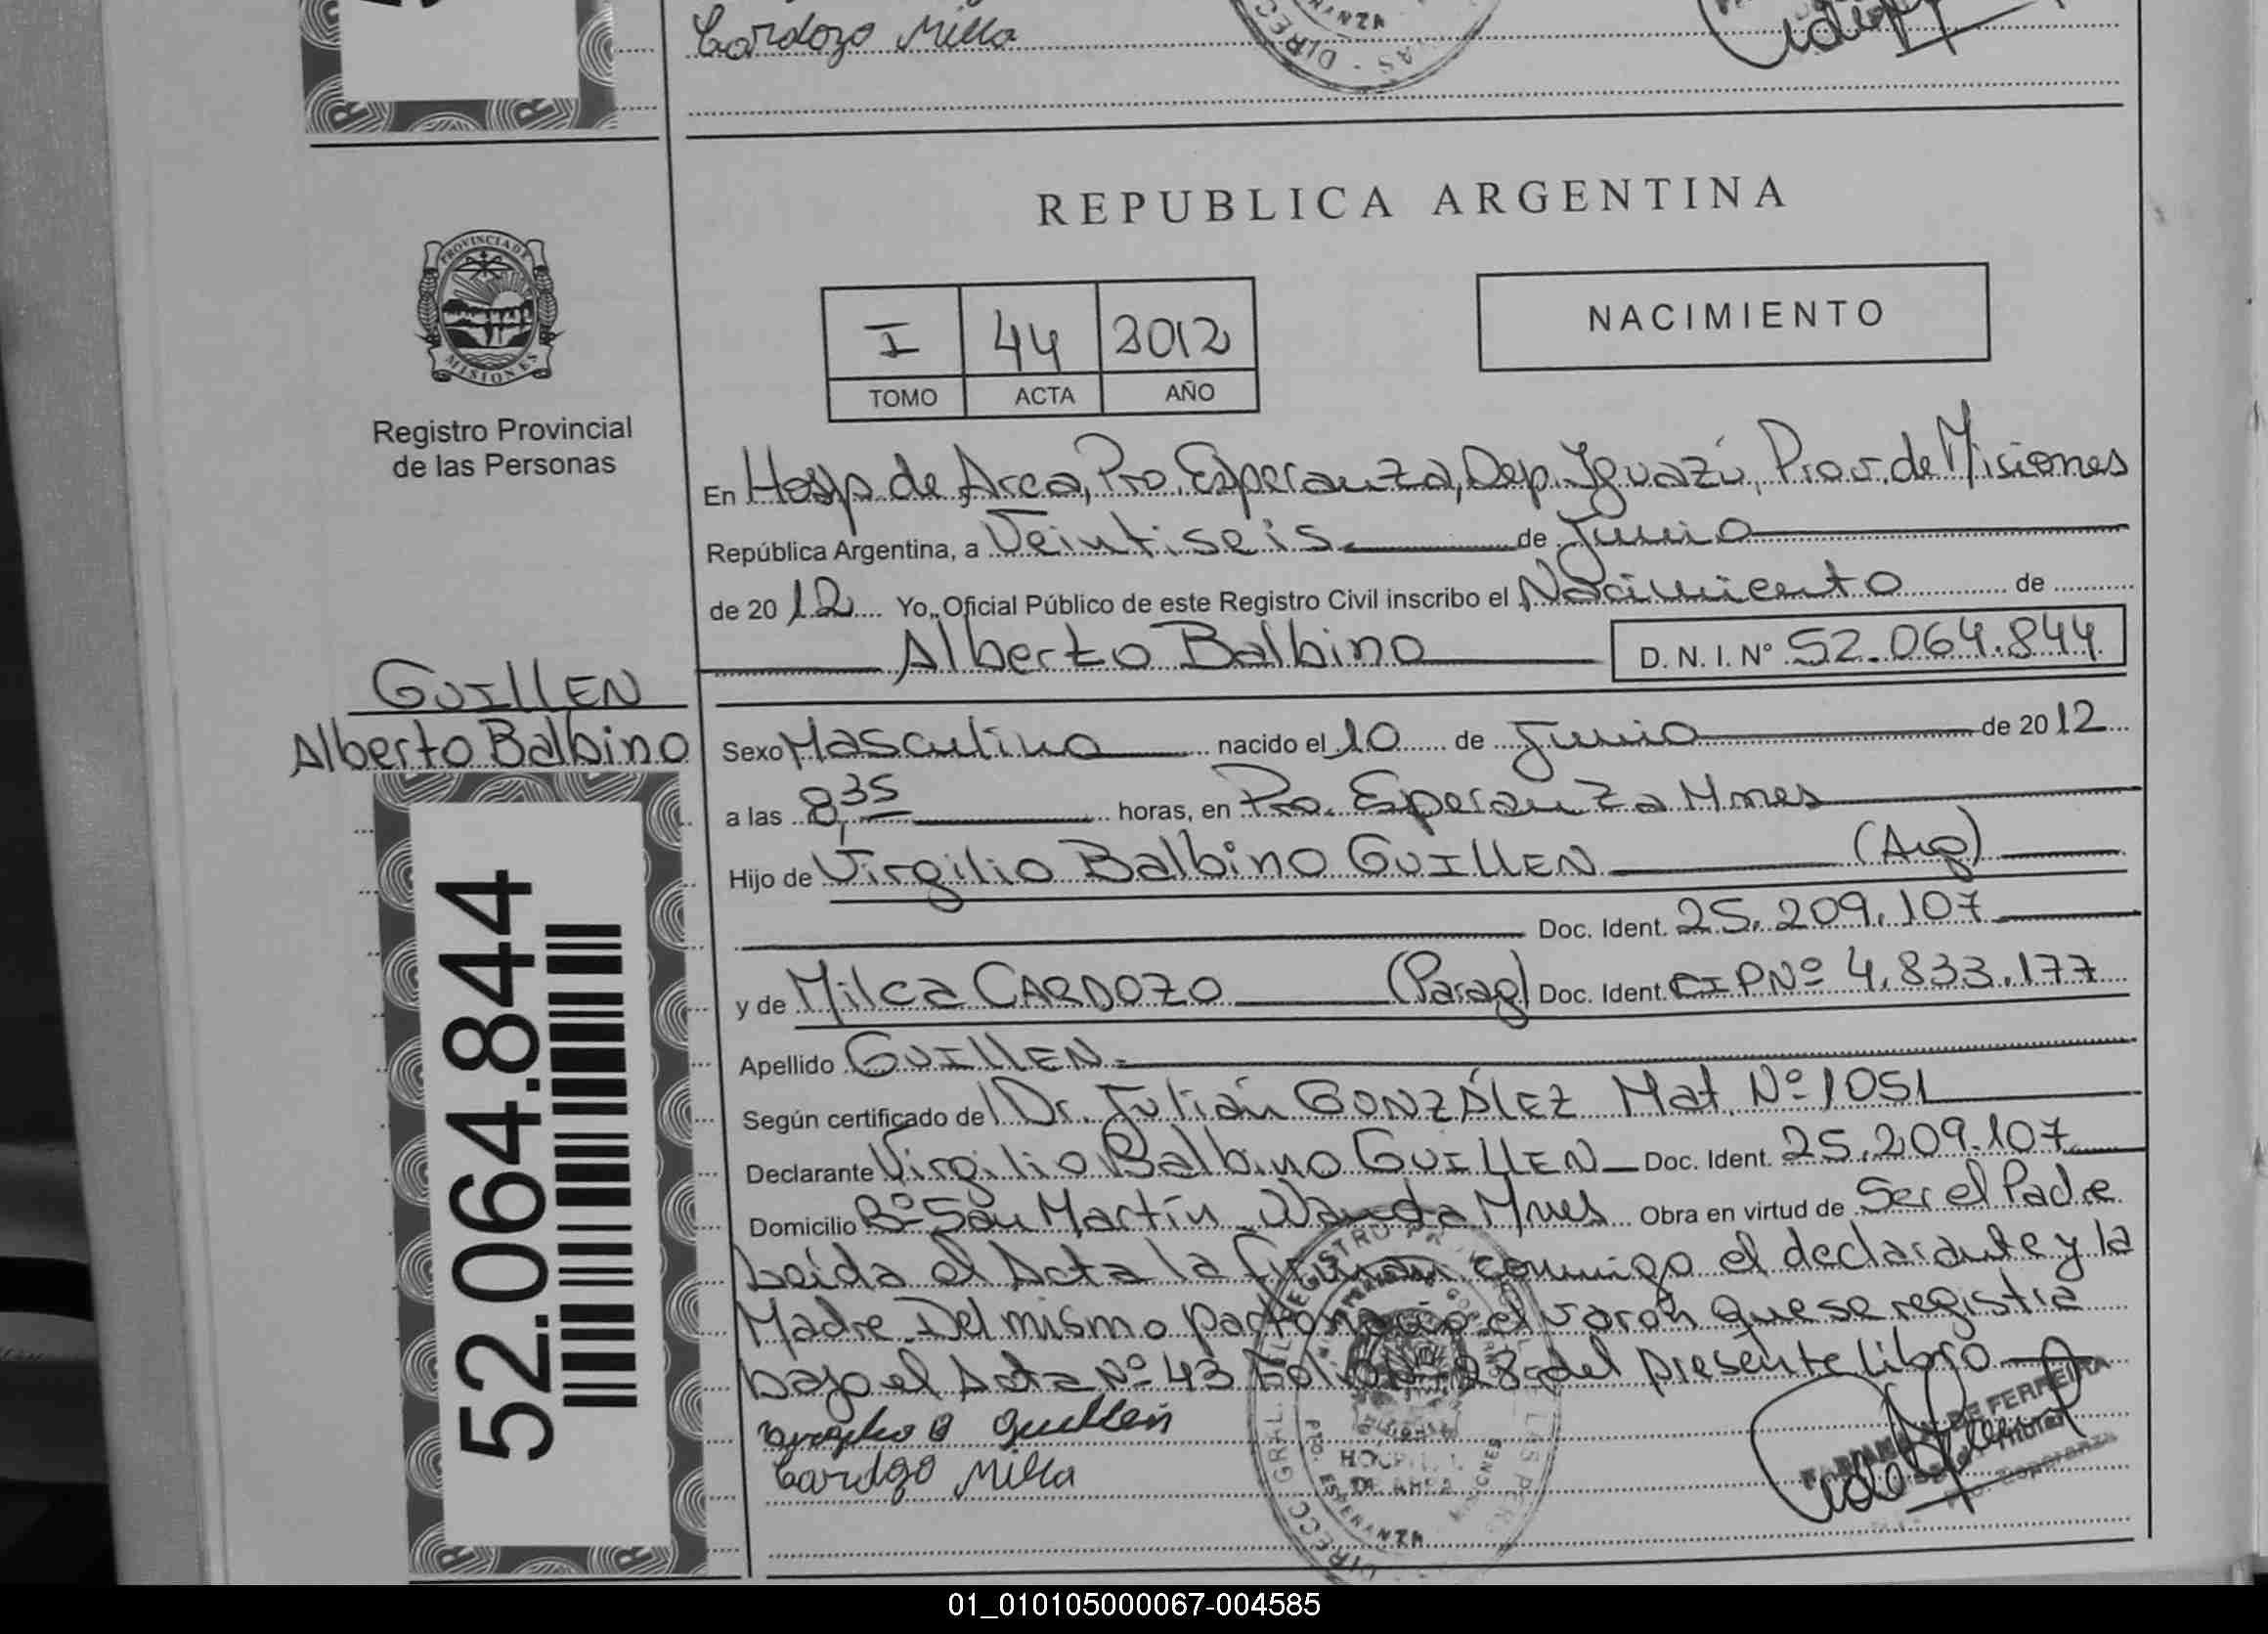 Cardozo Milca
REPUBLICA ARGENTINA
PROVINCIA DE
MISIONES
Registro Provincial
de las Personas
I 44 2012
TOMO ACTA AÑO
NACIMIENTO
En Hosp. de Area, Pto. Esperanza, Dep. Iguazú, Prov. de Misiones
República Argentina, a Veintiseis de Junio
de 2012 Yo, Oficial Público de este Registro Civil inscribo el Nacimiento de
Alberto Balbino D.N.I.Nº 52.064.844
GUILLEN
Alberto Balbino
52.064.844
Sexo Masculino nacido el 10 de Junio de 2012
a las 8,35 horas, en Pto. Eperanza Mnes
Hijo de Virgilio Balbino GUILLEN (Arg)
Doc. Ident. 25.209.107
y de Milca CARDOZO (Parag) Doc. Ident. CIPNº 4.833.177
Apellido GUILLEN
Según certificado del Dr. Julián GONZÁLEZ Mat. Nº 1051
Declarante Virgilio Balbino GUILLEN Doc. Ident. 25.209.107
Domicilio Bº San Martín Wanda Mnes Obra en virtud de Ser el Padre
Leída el Acta la firman conmigo el declarante y la
Madre. Del mismo parto nació el varon que se registra
bajo el Acta Nº 43 Folio Nº 28 del presente libro
Virgilio B Guillen
Cardozo Milca
DE FERREIRA
Titular
Pto. Esperanza
HOSPITAL
DE AREA
01_010105000067-004585